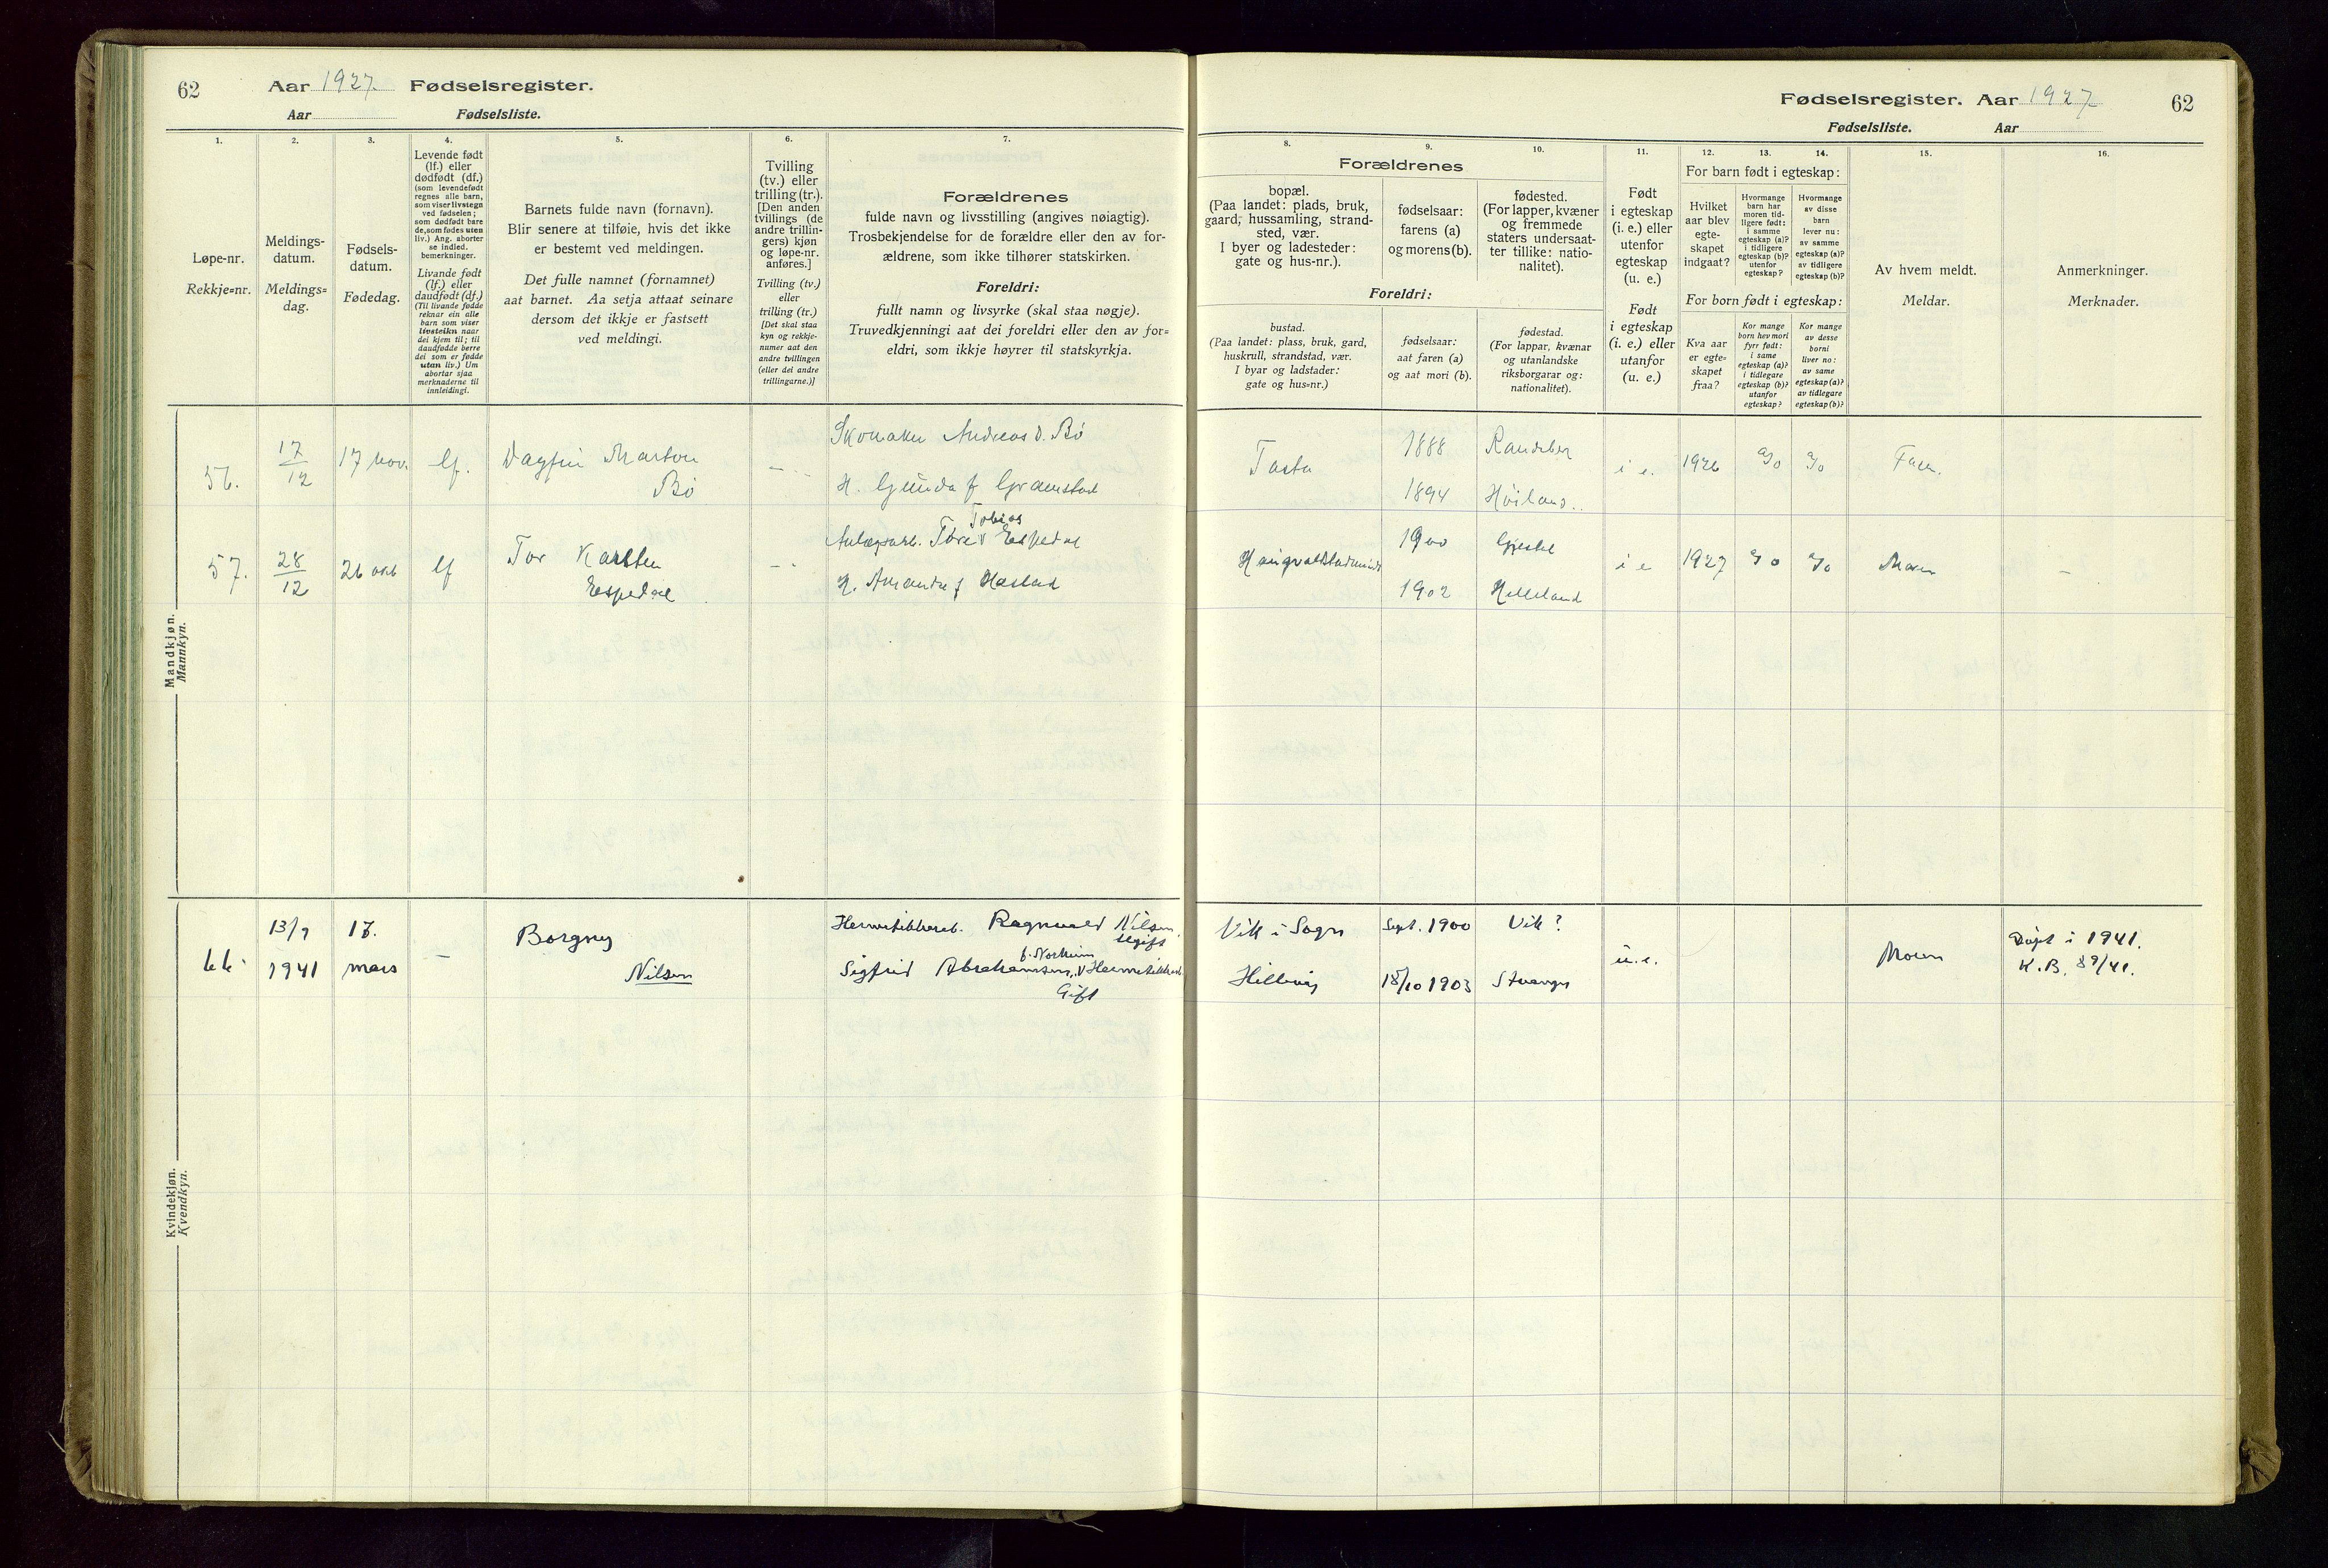 62 Aar 1927. Fødselsregister.
Aar Fødselsliste.
Fødselsregister. Aar 1927 62
Fødselsliste. Aar
1. 2. 3. 4. 5. 6. 7.
Løpe-nr.
Rekkje=nr.
Meldings-
datum.
Meldings=
dag.
Fødsels-
datum.
Fødedag.
Levende født
(lf.) eller
dødfødt (df.)
(som levendefødt
regnes alle barn,
som viser livstegn
ved fødselen;
som dødfødt bare
de, som fødes uten
liv.) Ang. aborter
se indled.
bemerkninger.
Livande født
(lf.) eller
daudfødt (df.)
(Til livande fødde
reknar ein alle
barn som viser
livsteikn naar
dei kjem til; til
daudfødde berre
dei som er fødde
utan liv.) Um
abortar sjaa
merknaderne til
innleidingi.
Barnets fulde navn (fornavn).
Blir senere at tilføie, hvis det ikke
er bestemt ved meldingen.
Det fulle namnet (fornamnet)
aat barnet. Aa setja attaat seinare
dersom det ikkje er fastsett
ved meldingi.
Tvilling
(tv.) eller
trilling (tr.).
[Den anden
tvillings (de
andre trillin-
gers) kjøn
og løpe-nr.
anføres.]
Tvilling (tv.)
eller
trilling (tr.)
[Det skal staa
kyn og rekkje-
numer aat den
andre tvillingen
(eller dei andre
trillingarne.)]
Forældrenes
fulde navn og livsstilling (angives nøiagtig).
Trosbekjendelse for de forældre eller den av for-
ældrene, som ikke tilhører statskirken.
Foreldri:
fullt namn og livsyrke (skal staa nøgje).
Truvedkjenningi aat dei foreldri eller den av for=
eldri, som ikkje høyrer til statskyrkja.
8. 9. 10. 11. 12. 13. 14. 15. 16.
Forældrenes
bopæl.
(Paa landet: plads, bruk,
gaard, hussamling, strand-
sted, vær.
I byer og ladesteder:
gate og hus-nr.).
fødselsaar:
farens (a)
og morens (b).
fødested.
(For lapper, kvæner
og fremmede
staters undersaat-
ter tillike: natio-
nalitet).
Foreldri:
bustad.
(Paa landet: plass, bruk, gard,
huskrull, strandstad, vær.
I byar og ladstader:
gate og hus-nr.)
fødselsaar:
aat faren (a)
og aat mori (b).
fødestad.
(For lappar, kvænar
og utanlandske
riksborgarar og:
nationalitet).
Født
i egteskap
(i. e.) eller
utenfor
egteskap
(u. e.)
Født
i egteskap
(i. e.) eller
utanfor
(u. e.)
For barn født i egteskap:
Hvilket
aar blev
egte-
skapet
indgaat?
Hvormange
barn har
moren tid-
ligere født:
i samme
egteskap (a)?
i tidligere
egteskap (b)?
utenfor
egteskap?
Hvormange
av disse
barn
lever nu:
av samme
egteskap (a)?
av tidligere
egteskap (b)?
For born født i egteskap:
Kva aar
er egte-
skapet
fraa?
Kor mange
born hev mori
fyrr født:
i same
egteskap (a)?
i tidlegare
egteskap (b)?
utanfor
egteskap?
Kor mange
av desse
borni
liver no:
av same
egteskap (a)?
av tidlegare
egteskap (b)?
Av hvem meldt.
Meldar.
Anmerkninger.
Merknader.
Mandkjøn.
Mannkyn.
56. 17/12 17 nov. lf. Dagfin Marton
Bö
Skomaker Andreas Bö
H. Gunda f Gramstad
Tasta 1888 1894 Høiland i e. 1926 Faren.
57. 28/12 26 okt lf Tor Karsten
Espedal
Anlægsarb. Tore Tobias Espedal
H. Amanda f Hastad
1900 Gjestal
1902 Helleland i e 1927 Moren -
Kvindekjøn.
Kvendkyn.
66 13/9 1941 17. mars - Borgny
Nilsen
Hermetikkarb. Ragnvald Nilsen,
ugift
f. Norheim
Sigfrid Abrahamsen, Hermetikkarb
Gift
Vik i Sogn Sept. 1900 Vik?
Hillevåg 18/10 1903 Stvanger u.e. Moren
Døpt i 1941.
K.B. 89/41.